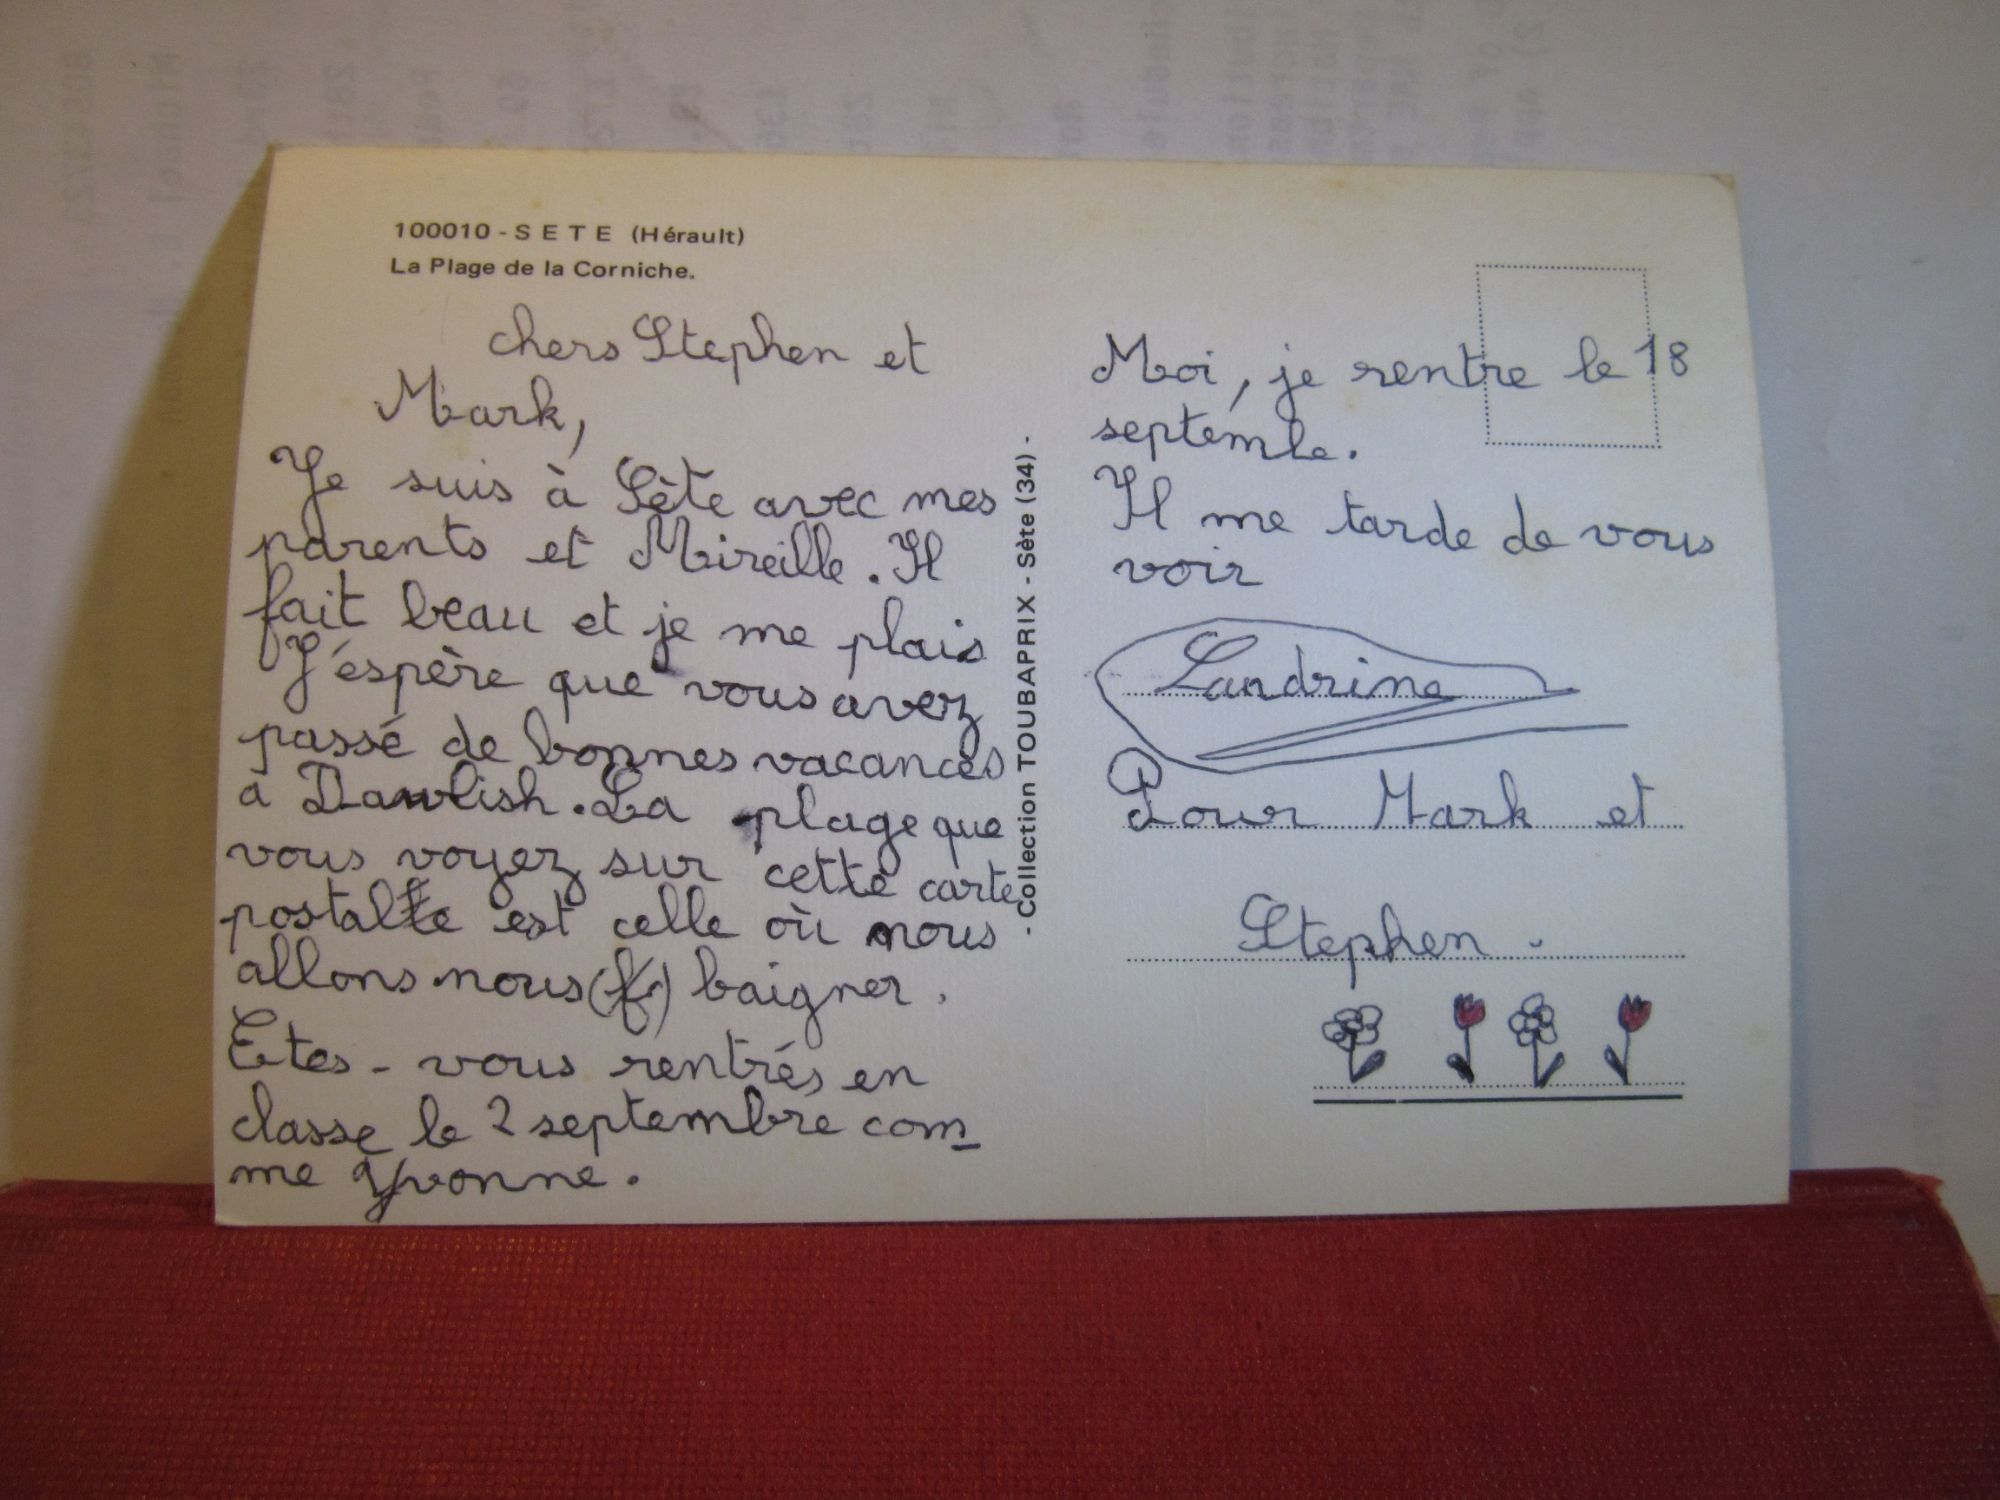 100010 - SETE (Hérault)
La Plage de la Corniche.
chers Stephen et
Mark,
Je suis à Sète avec mes
parents et Mireille. Il
fait beau et je me plais
J'éspère que vous avez
passé de bonnes vacances
à Dawlish. La plage que
vous voyez sur cette carte
postale est celle où nous
allons nous baigner.
Etes-vous rentrés en
classe le 2 septembre com-
me Yvonne.
- Collection TOUBAPRIX - Sète (34) -
Moi, je rentre le 18
septemble.
Il me tarde de vous
voir
Sandrine
Pour Mark et
Stephen -